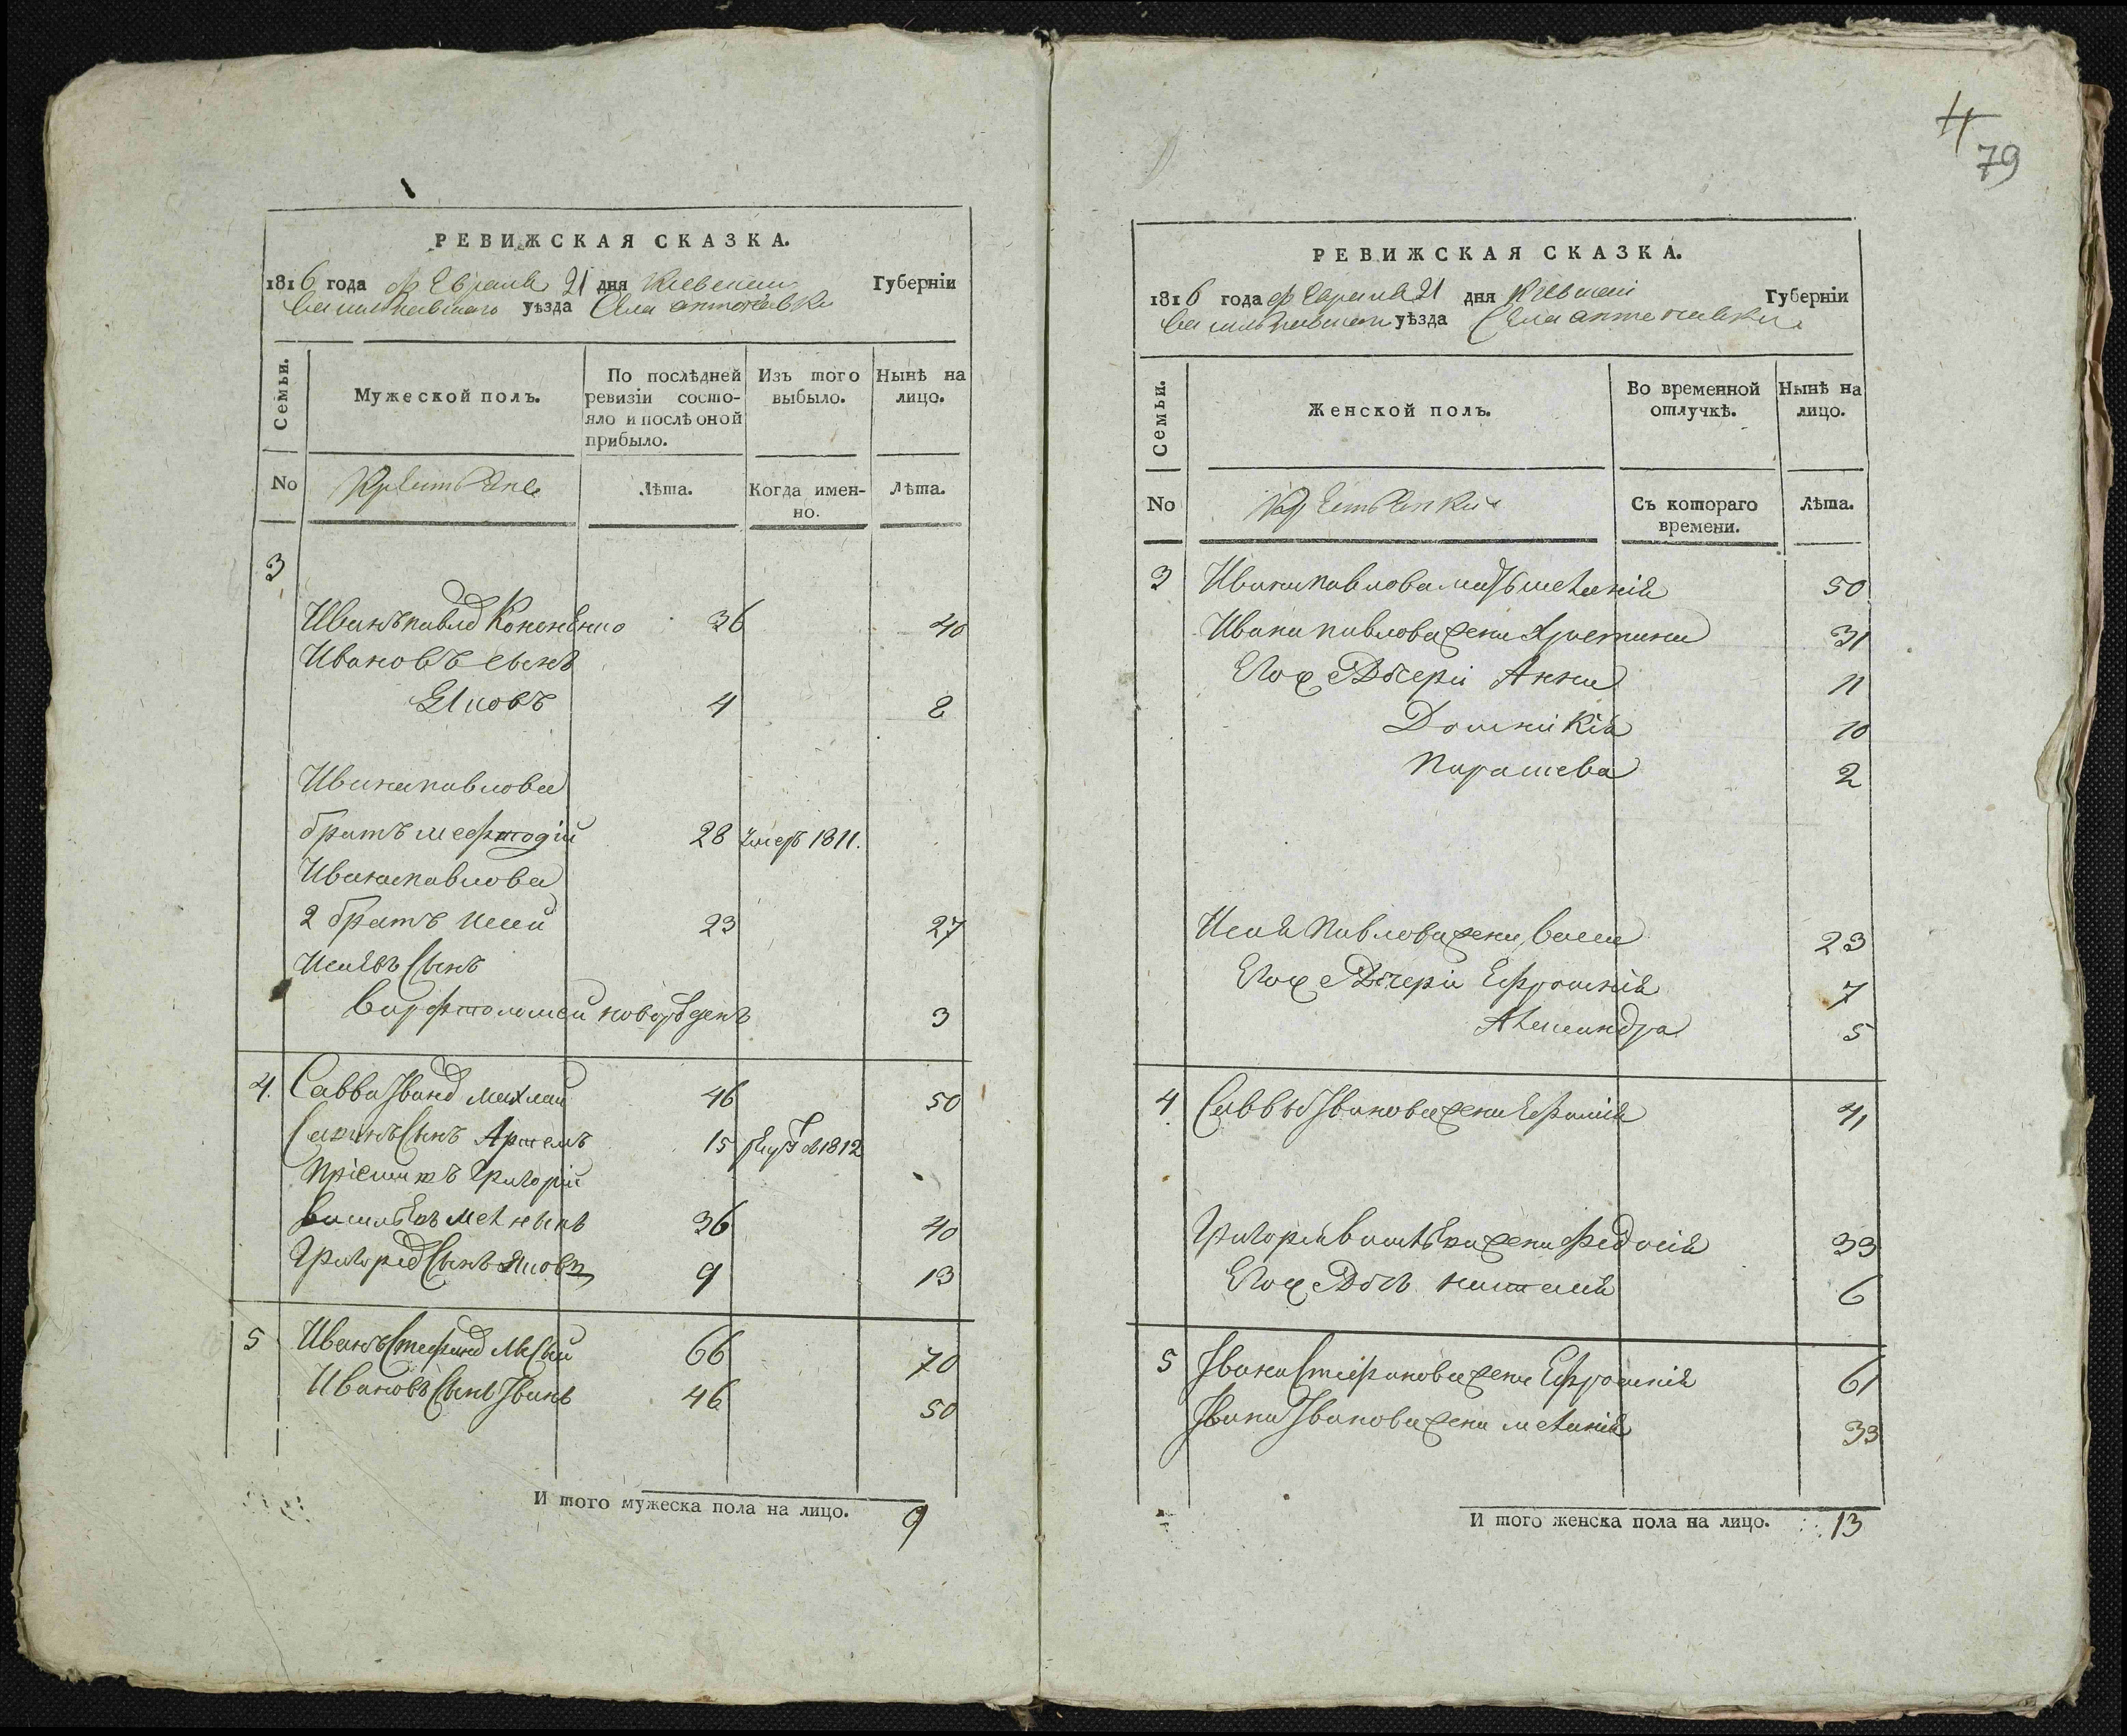 РЕВИЖСКАЯ СКАЗКА.
1816 года февраля 21 дня Киевской Губерніи
Васильковского уѣзда Села антоновки
Семьи.
Мужеской полъ.
По послѣдней ревизіи состояло и послѣ оной прибыло.
Изъ того выбыло.
Нынѣ на лицо.
No
Крестьяне
Лѣта.
Когда именно.
Лѣта.
3
Иванъ павлов Кононенко 36 40
Ивановъ сынъ
Яковъ 4 8
Ивана павлова
братъ мефтодій 28 умеръ 1811.
Ивана павлова
2 братъ исай 23 27
Исаевъ Сынъ
варфтоломей новорѣденъ 3
4. Савва Іванов 46 50
Савинъ Сынъ Артемъ 15 1812
Пріемитъ Григорій
васильевъ 36 40
Григоров Сынъ яковъ 9 13
5 Иванъ Стефанов 66 70
Ивановъ Сынъ Іванъ 46 50
И того мужеска пола на лицо. 9
4
79
РЕВИЖСКАЯ СКАЗКА.
1816 года февраля 21 дня Киевской Губерніи
васильковского уѣзда Села антоновки
Семьи.
Женской полъ.
Во временной отлучкѣ.
Нынѣ на лицо.
No
Крестьянки
Съ котораго времени.
Лѣта.
3 Ивана павлова мать меланія 50
Ивана павлова жена Христина 31
Его же Дочери Анна 11
Домникія 10
Парашева 2
Исая Павлова жена васса 23
Его же Дочери Ефросинія 7
Александра 5
4 Саввы Іванова жена Ефимія 41
Григорія васильева жена федосія 33
Его же Дочь наталія 6
5 Івана Стефанова жена Ефросинія 61
Івана Іванова жена меланія 33
И того женска пола на лицо. 13